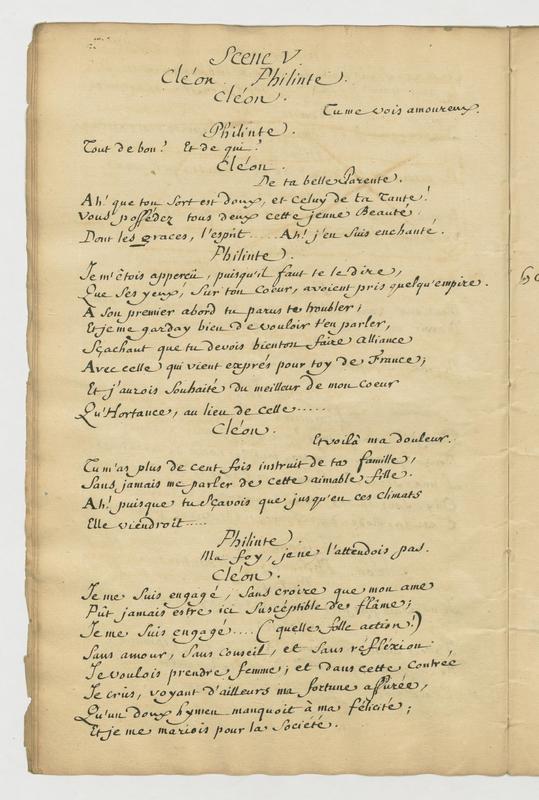 Scene V.
Cléon. Philinte.
Cléon.
Tu me vois amoureux.
Philinte.
Tout de bon? Et de qui?
Cléon.
De ta belle Parente.
Ah! que ton Sort est doux, et celuy de ta Tante!
Vous possédez tous deux cette jeune Beauté
Dont les graces, l'esprit..... Ah! j'en suis enchanté.
Philinte.
Je m'étois apperçû, puisqu'il faut te le dire,
Que ses yeux, sur ton Coeur, avoient pris quelqu'empire.
A son premier abord tu parus te troubler;
Et je me garday bien de vouloir t'en parler,
Sçachant que tu devois bientôn faire alliance
Avec celle qui vient exprés pour toy de France;
Et j'aurois Souhaité du meilleur de mon Coeur
Qu'Hortance, au lieu de celle.....
Cléon.
Et voilà ma douleur.
Tu m'as plus de cent fois instruit de ta famille,
Sans jamais me parler de cette aimable fille.
Ah! puisque tu Sçavois que jusqu'en ces climats
Elle viendroit.....
Philinte.
Ma foy, je ne l'attendois pas.
Cléon.
Je me suis engagé, Sans croire que mon ame
Pût jamais estre ici Susceptible de flâme;
Je me Suis engagé.... (quelle folle action!)
Sans amour, Sans Conseil, et Sans réfléxion.
Je voulois prendre femme; et dans cette Contrée
Je crûs, voyant d'ailleurs ma fortune assurée,
Qu'un doux hymen manquoit à ma félicité;
Et je me mariois pour la Société.